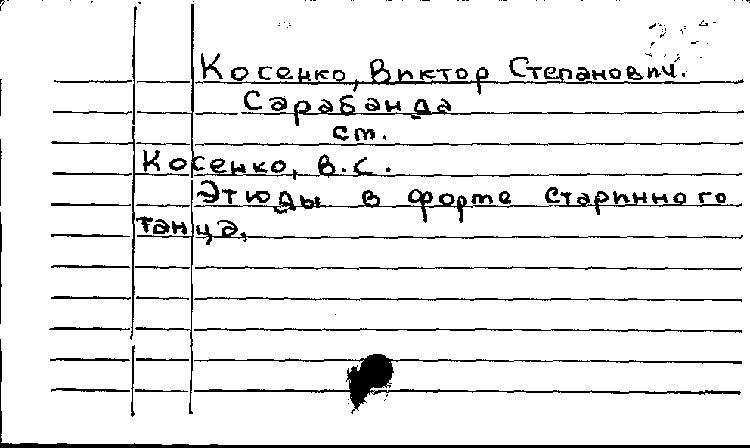 Косенко, Виктор Степанович.
Сарабанда
ст.
Косенко, В.С.
Этюды в форме старинного
танца.